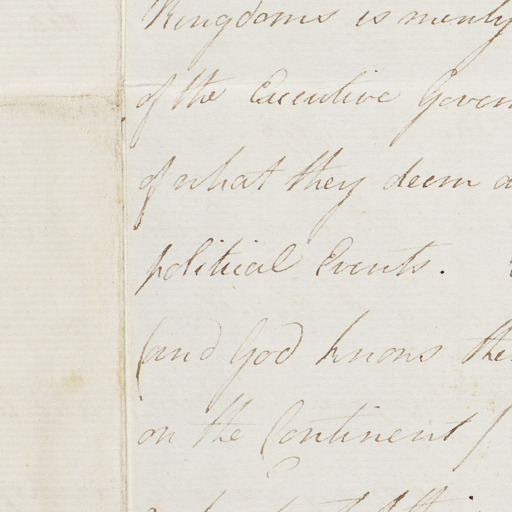 Kingdoms is merely
of the Executive Govern
of what they deem a
political Events.
(and God knows the
on the Continent